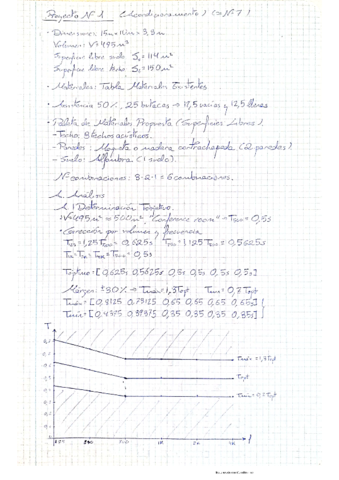 Proyecto Nº 1
Dimensiones: 15m × 10m × 3,3m
Volumen: V=495m³
Superficie libre suelo S =114m²
Superficie libre techo S =150m²
Materiales: Tabla Materiales Existentes
50%, 25 butacas → 12,5 vacías y 12,5 llenas
Paleta de Materiales Propuesta (Superficies Libres).
- Techo: 8 techos acústicos.
- Paredes: o madera contrachapada (2 paredes)
- Suelo: Alfombra (1 suelo).
Nº combinaciones: 8·2·1 = 16 combinaciones.
1. Análisis
1.1 Determinación Toptimo.
V=495m³ ≈ 500m³ "Conference room" → T = 0,5s
Corrección por volumen y frecuencia
= 0,625s = 0,5625s
= 0,5s
Toptimo=[0,625s 0,5625s 0,5s 0,5s 0,5s 0,5s]
Márgen: ±30% → Tmax=1,3Topt Tmin=0,7Topt
Tmax=[0,8125 0,73125 0,65 0,65 0,65 0,65s]
Tmin=[0,4375 0,39375 0,35 0,35 0,35 0,35s]
T
Tmax=1,3Topt
Topt
Tmin=0,7Topt
1K 2K 4K f